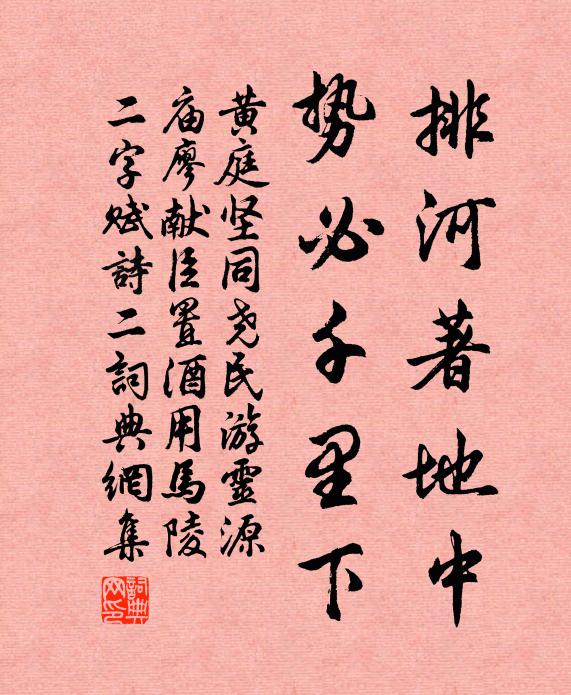 排河著地中
势必千里下
黄庭坚同尧民游靈源
庙廖献臣置酒用馬陵
二字赋詩二詞典網集
詞典网印